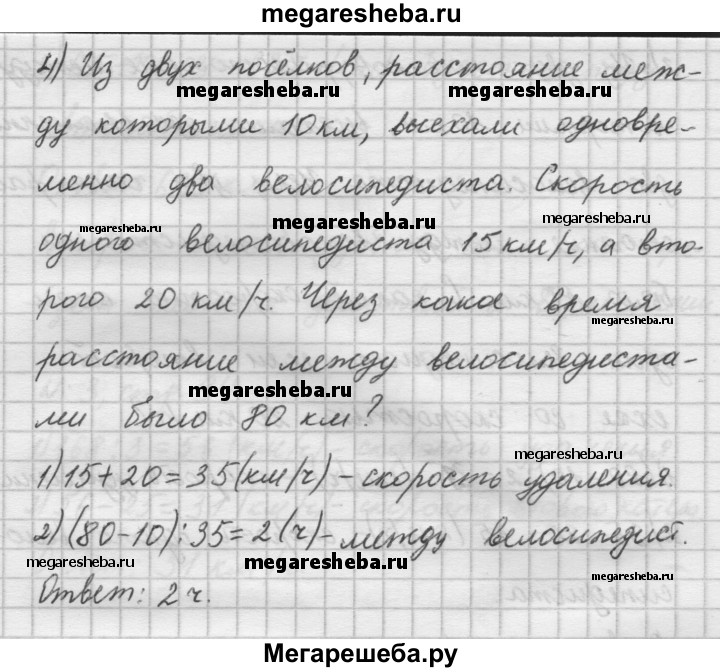 megaresheba.ru
4) Из двух посёлков, расстояние меж-
megaresheba.ru megaresheba.ru
ду которыми 10 км, выехали одновре-
менно два велосипедиста. Скорость
megaresheba.ru megaresheba.ru megaresheba.ru
одного велосипедиста 15 км/ч, а вто-
рого 20 км/ч. Через какое время
megaresheba.ru
расстояние между велосипедиста-
megaresheba.ru
ми было 80 км?
megaresheba.ru
1) 15+20=35(км/ч) - скорость удаления.
2) (80-10):35=2(ч)- между велосипедист.
megaresheba.ru megaresheba.ru
Ответ: 2 ч.
Мегарешеба.ру